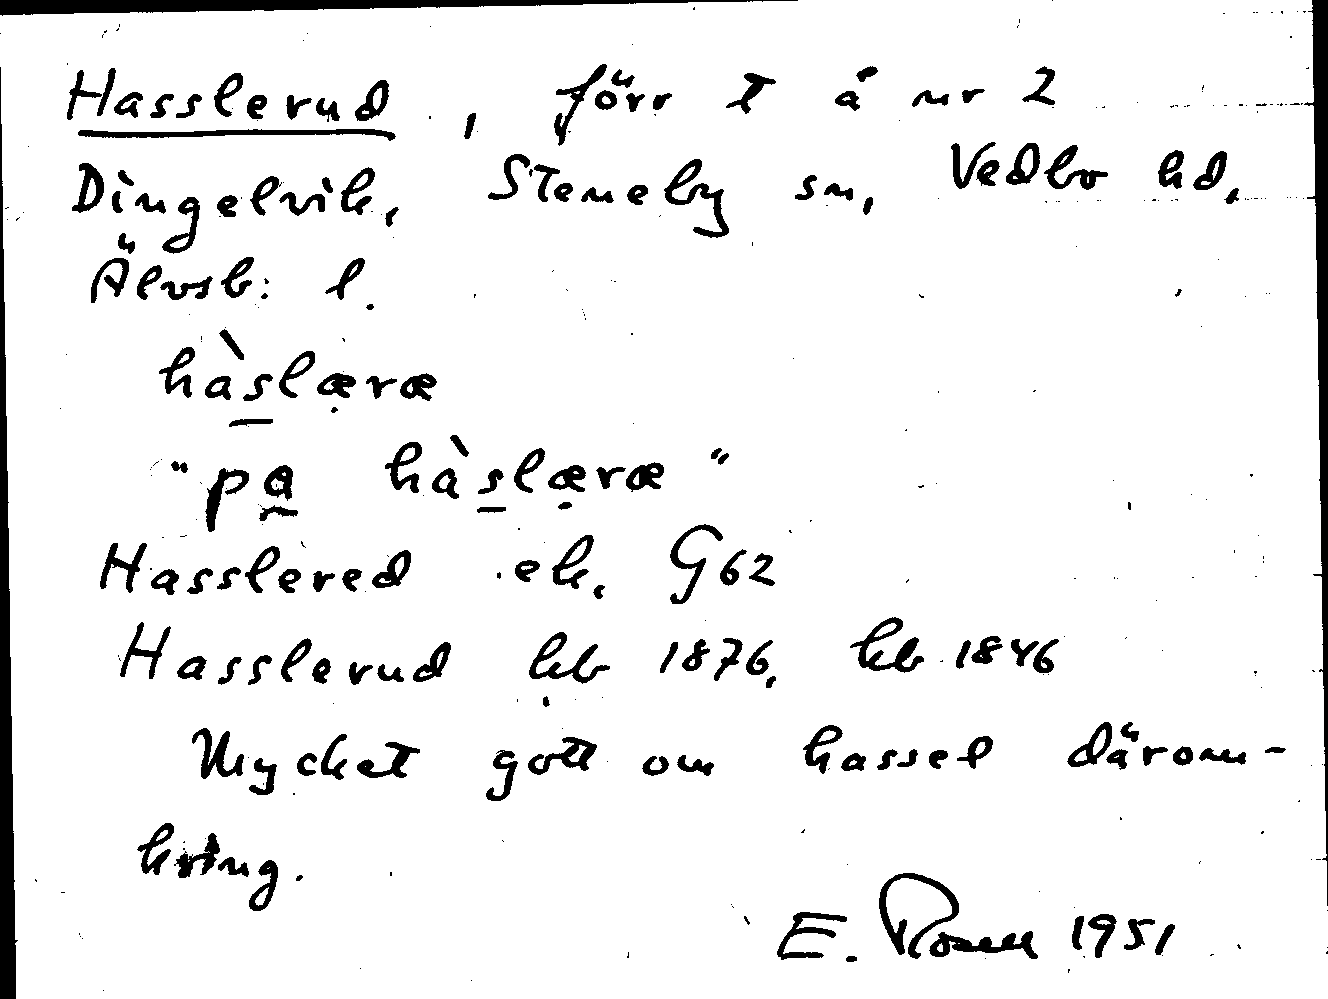 Hasslerud, förr t å nr 2
Dingelvik, Steneby sn, Vedbo hd,
Älvsb: l.
hàslæræ
"pa hàslæræ"
Hasslered ek. G62
Hasslerud hb 1876, kb 1846
Mycket gott om hassel därom-
kring.
E. Rosell 1951